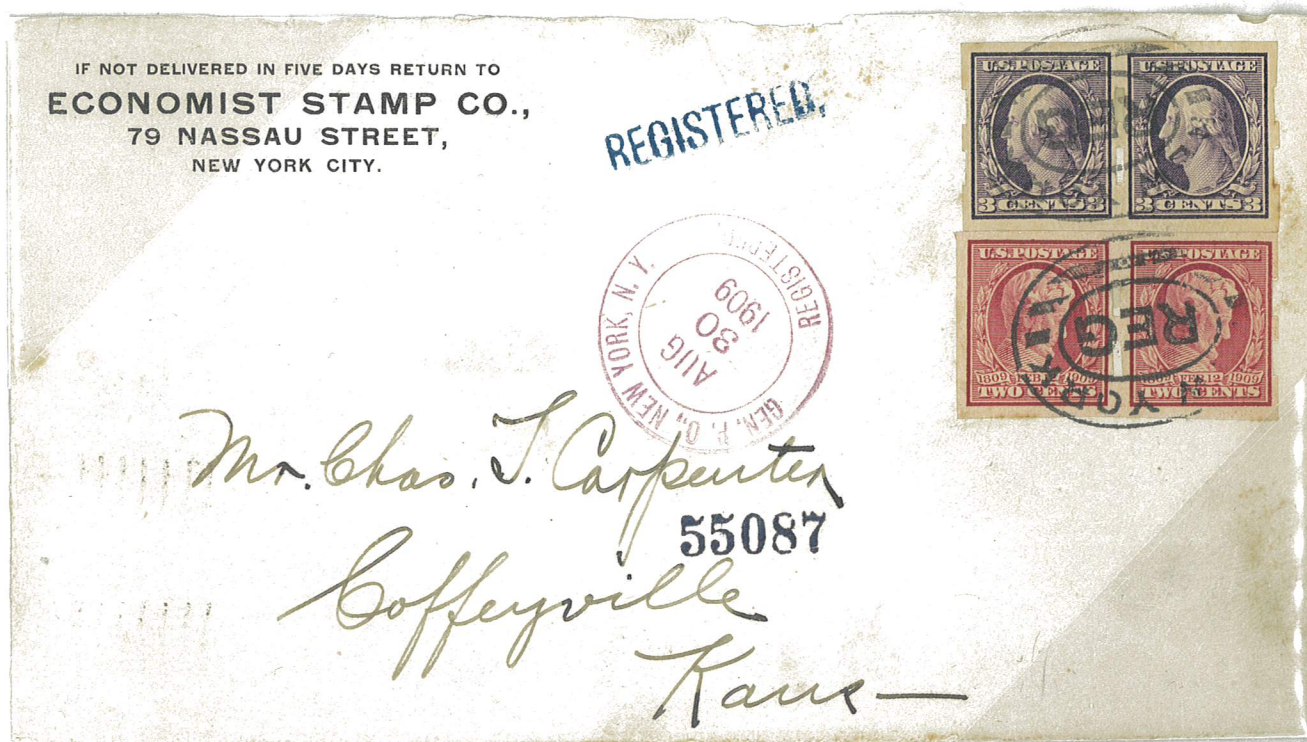 IF NOT DELIVERED IN FIVE DAYS RETURN TO
ECONOMIST STAMP CO.,
79 NASSAU STREET,
NEW YORK CITY.
REGISTERED.
U.S.POSTAGE
3 CENTS 3
U.S.POSTAGE
3 CENTS 3
U.S.POSTAGE
1809 FEB.12 1909
TWO CENTS
U.S.POSTAGE
1809 FEB.12 1909
TWO CENTS
REG
N YORK
GEN. P. O., NEW YORK, N. Y.
REGISTERED
AUG
30
1909
Mr. Chas. T. Carpenter
55087
Coffeyville
Kans